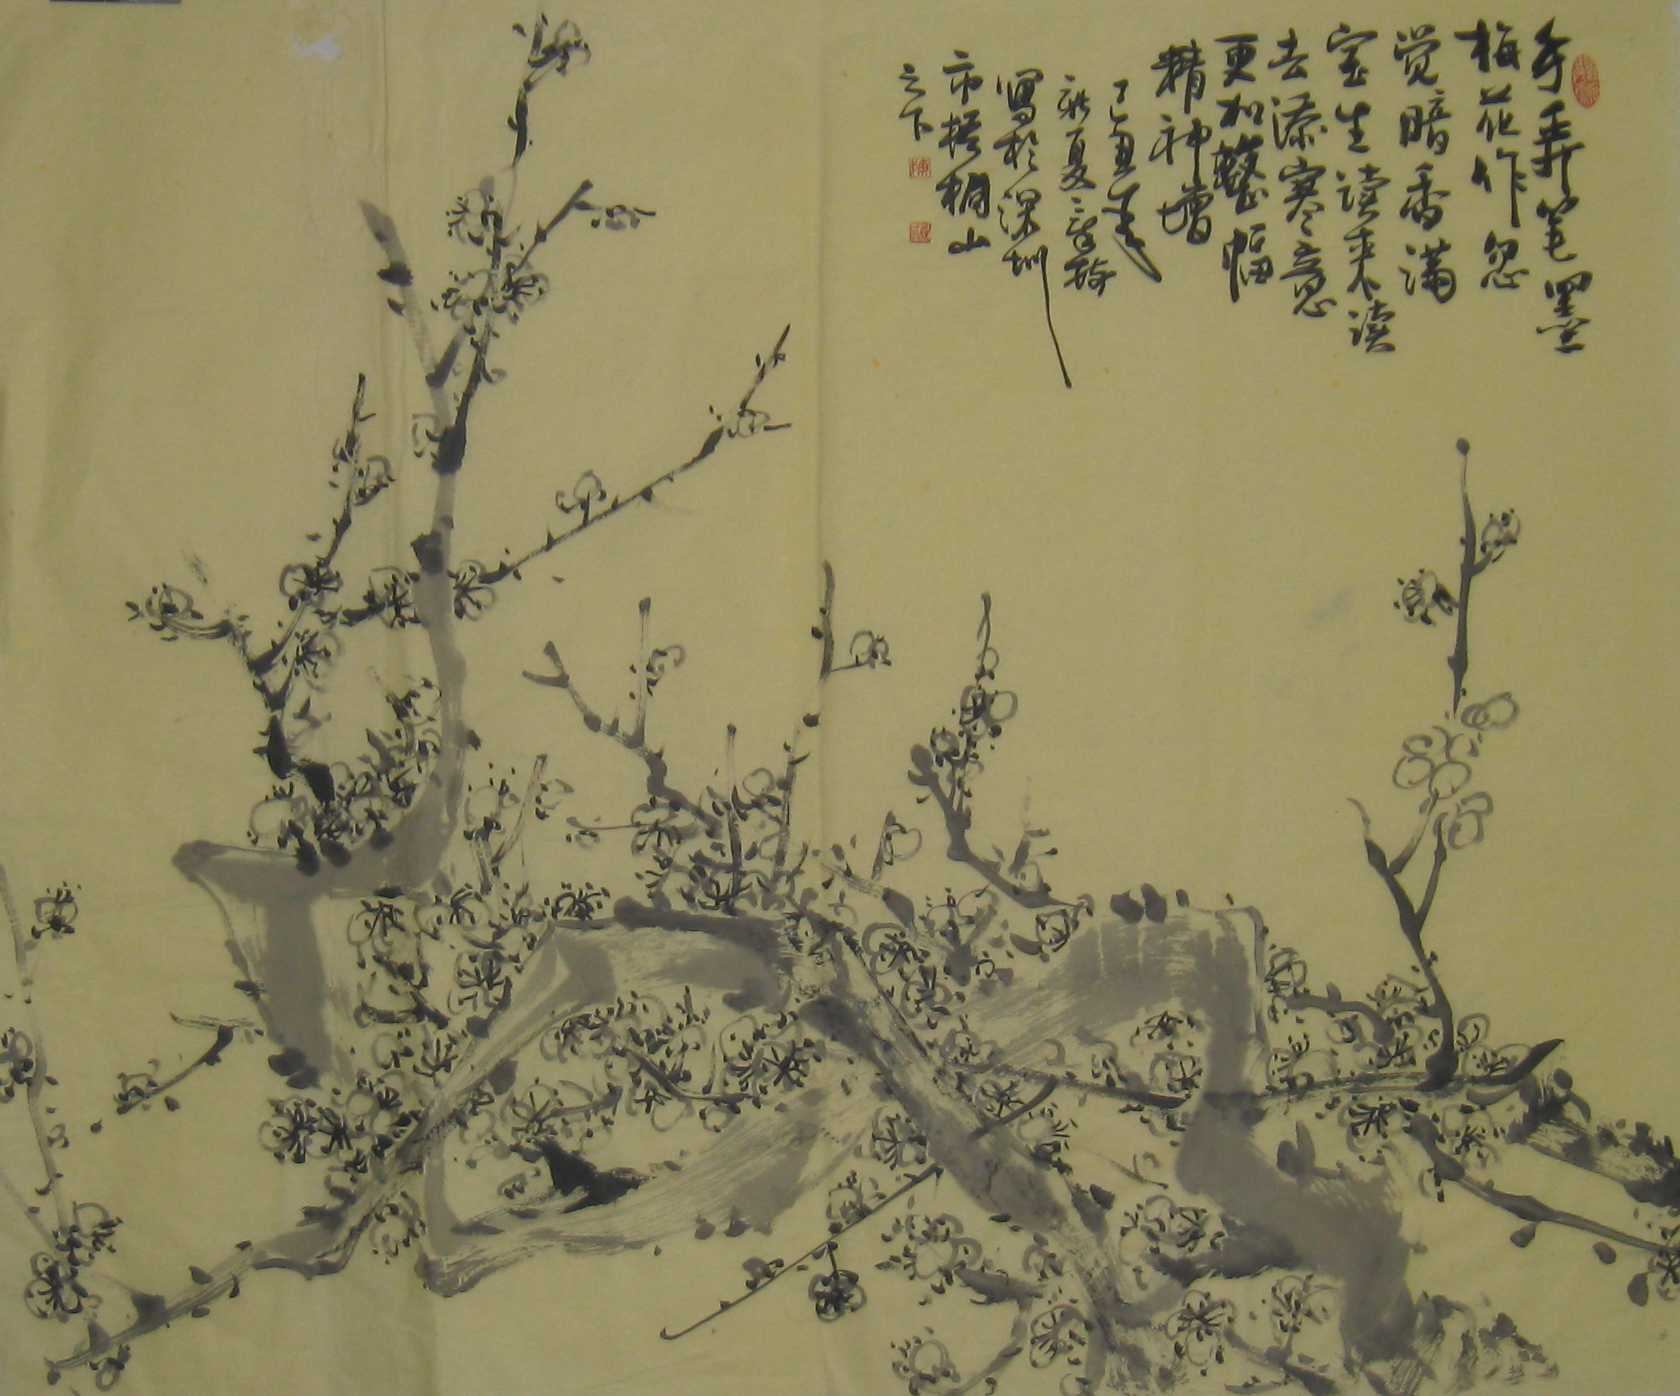 手弄笔墨
梅花作忽
觉暗香满
室生读来不读
去添寒意
更加整幅
精神增
丁丑年
新夏
写於深圳
市梧桐山
之下